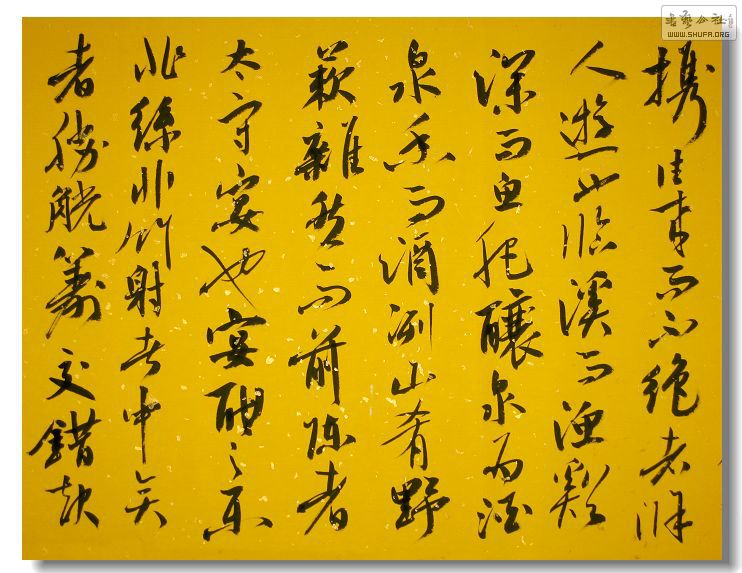 携往来而不絕者滁
人遊也臨溪而漁谿
深而魚肥釀泉為酒
泉香而酒洌山肴野
蔌雜然而前陳者
太守宴也宴酣之樂
非絲非竹射者中奕
者勝觥籌交錯起
书艺公社
WWW.SHUFA.ORG